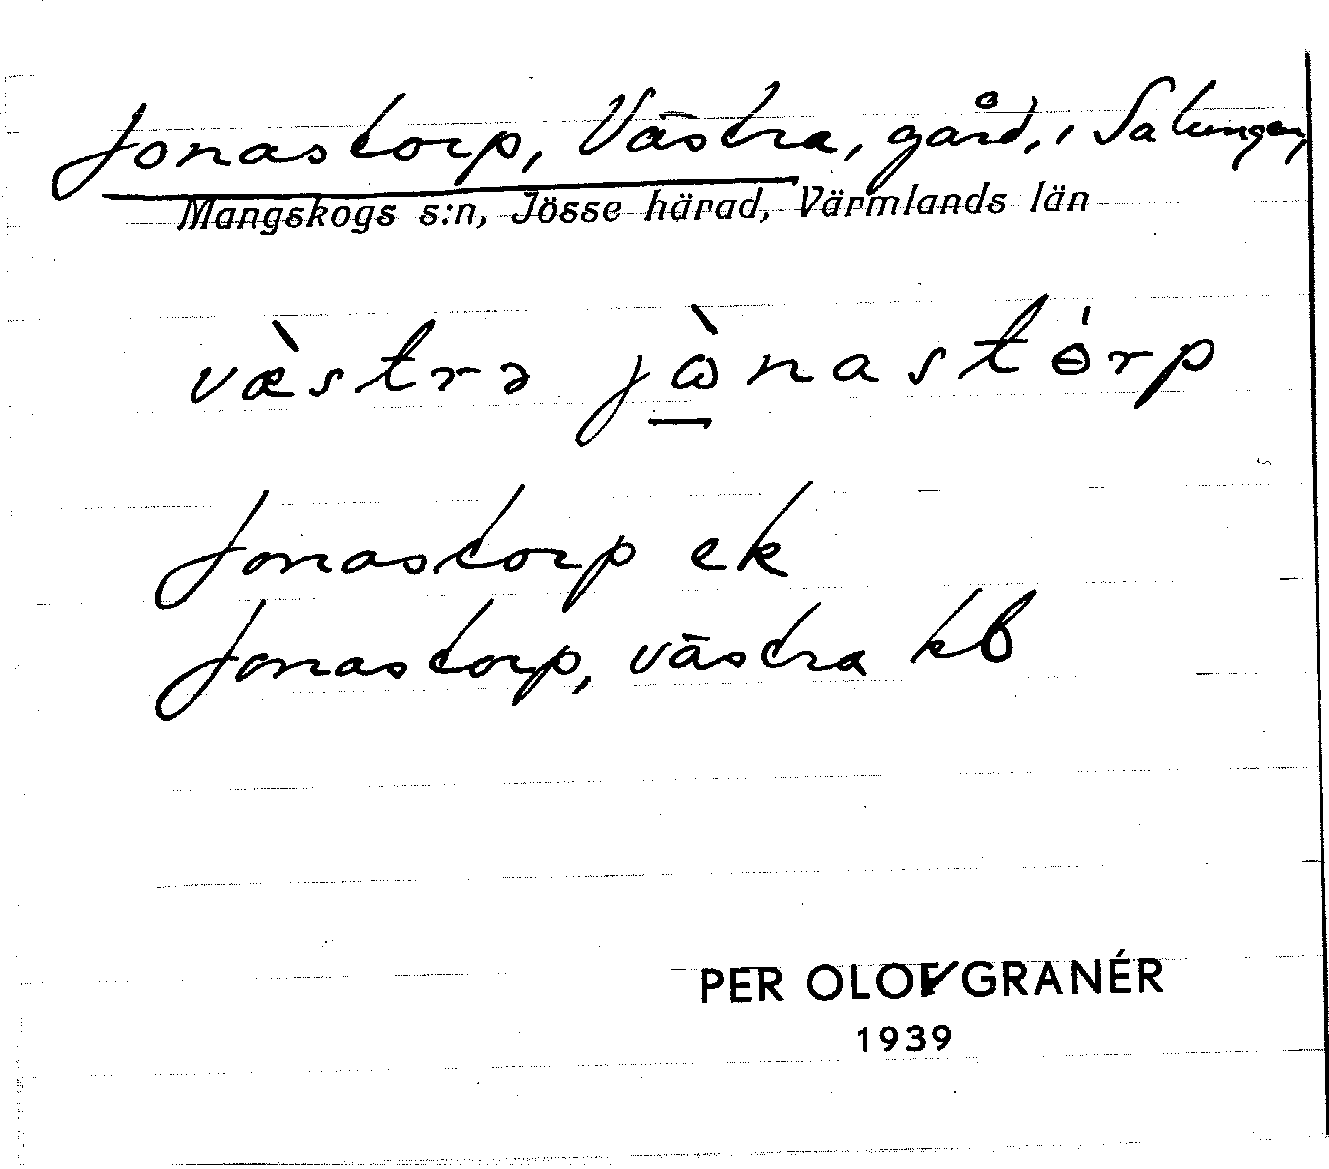 Jonastorp, Västra, gård, i Salungen,
Mangskogs s:n, Jösse härad, Värmlands län
væ̀strə jɷ̀nastɵ́rp
Jonastorp ek
Jonastorp, västra kb
PER OLOF GRANÉR
1939